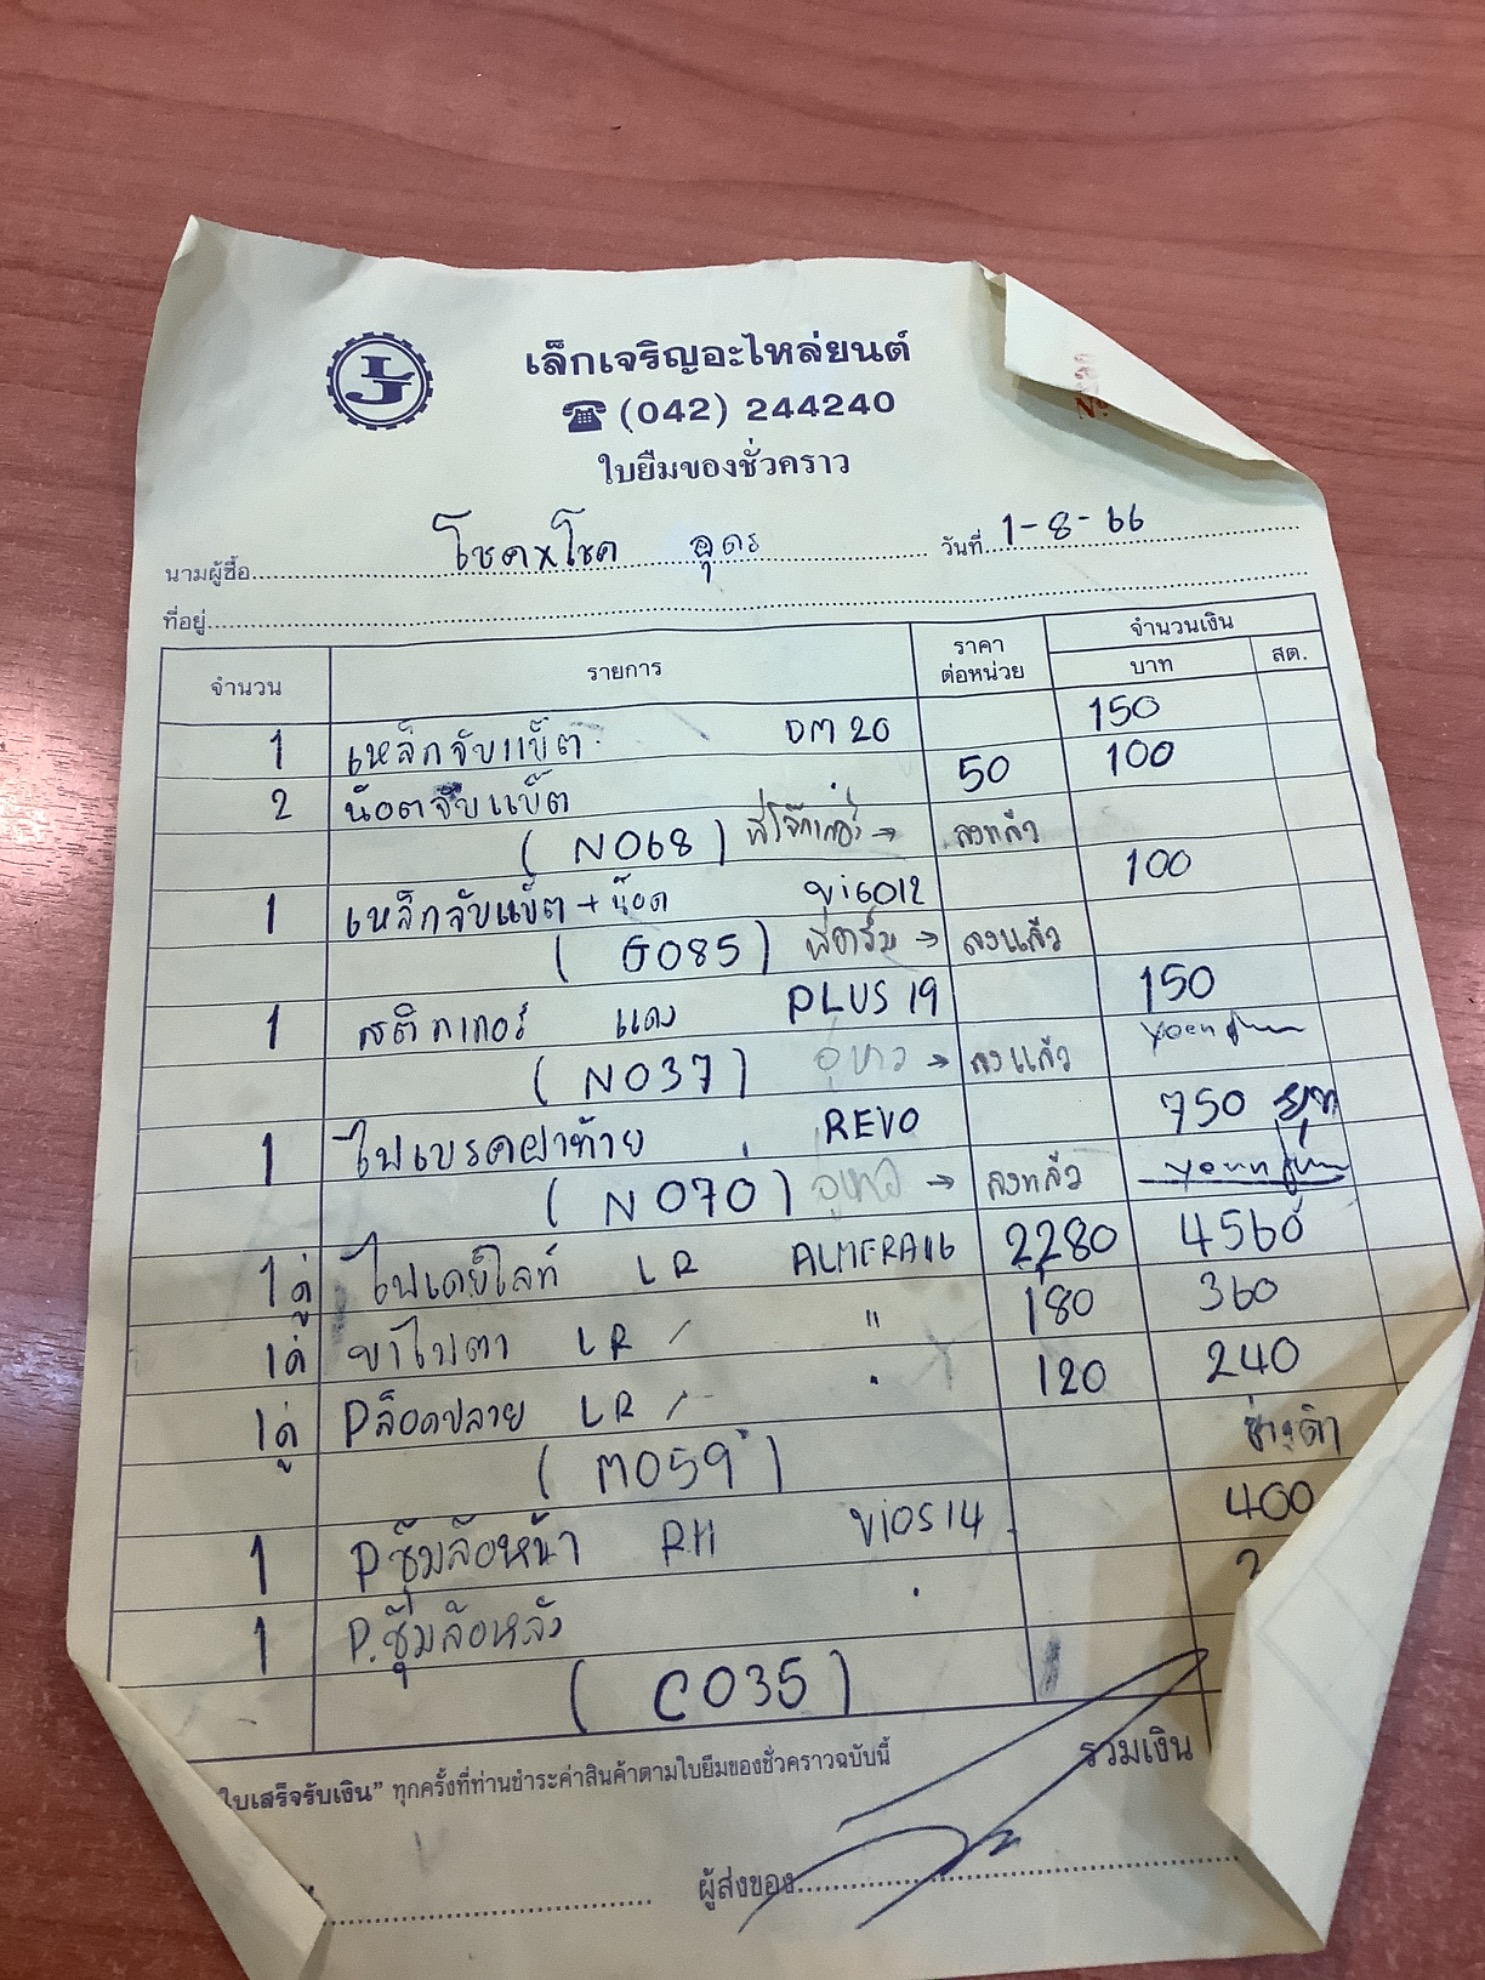 เล็กเจริญอะไหล่ยนต์
(042) 244240
ใบยืมของชั่วคราว
No
นามผู้ซื้อ โชคxโชค อุดร วันที่ 1-8-66
ที่อยู่
จำนวน รายการ ราคาต่อหน่วย จำนวนเงิน บาท สต.
1 เหล็กจับแบ็ต DM20 150
2 น๊อตจับแบ็ต 50 100
(N068) ลงแล้ว
1 เหล็กจับแบ็ต + น๊อต VIGO12 100
(G085) ลงแล้ว
1 สติกเกอร์ แดง PLUS 19 150
(N037) อู่ขาว → ลงแล้ว
1 ไฟเบรคฝาท้าย REVO 750
(N070) → ลงแล้ว
1คู่ ไฟเดย์ไลท์ LR ALMERA16 2280 4560
1คู่ ขาไฟตา LR / " 180 360
1คู่ Pล็อคปลาย LR / " 120 240
(M059) ช่างดำ
1 Pซุ้มล้อหน้า RH VIOS14 400
1 P.ซุ้มล้อหลัง " 2
(C035)
ใบเสร็จรับเงิน” ทุกครั้งที่ท่านชำระค่าสินค้าตามใบยืมของชั่วคราวฉบับนี้ รวมเงิน
ผู้ส่งของ